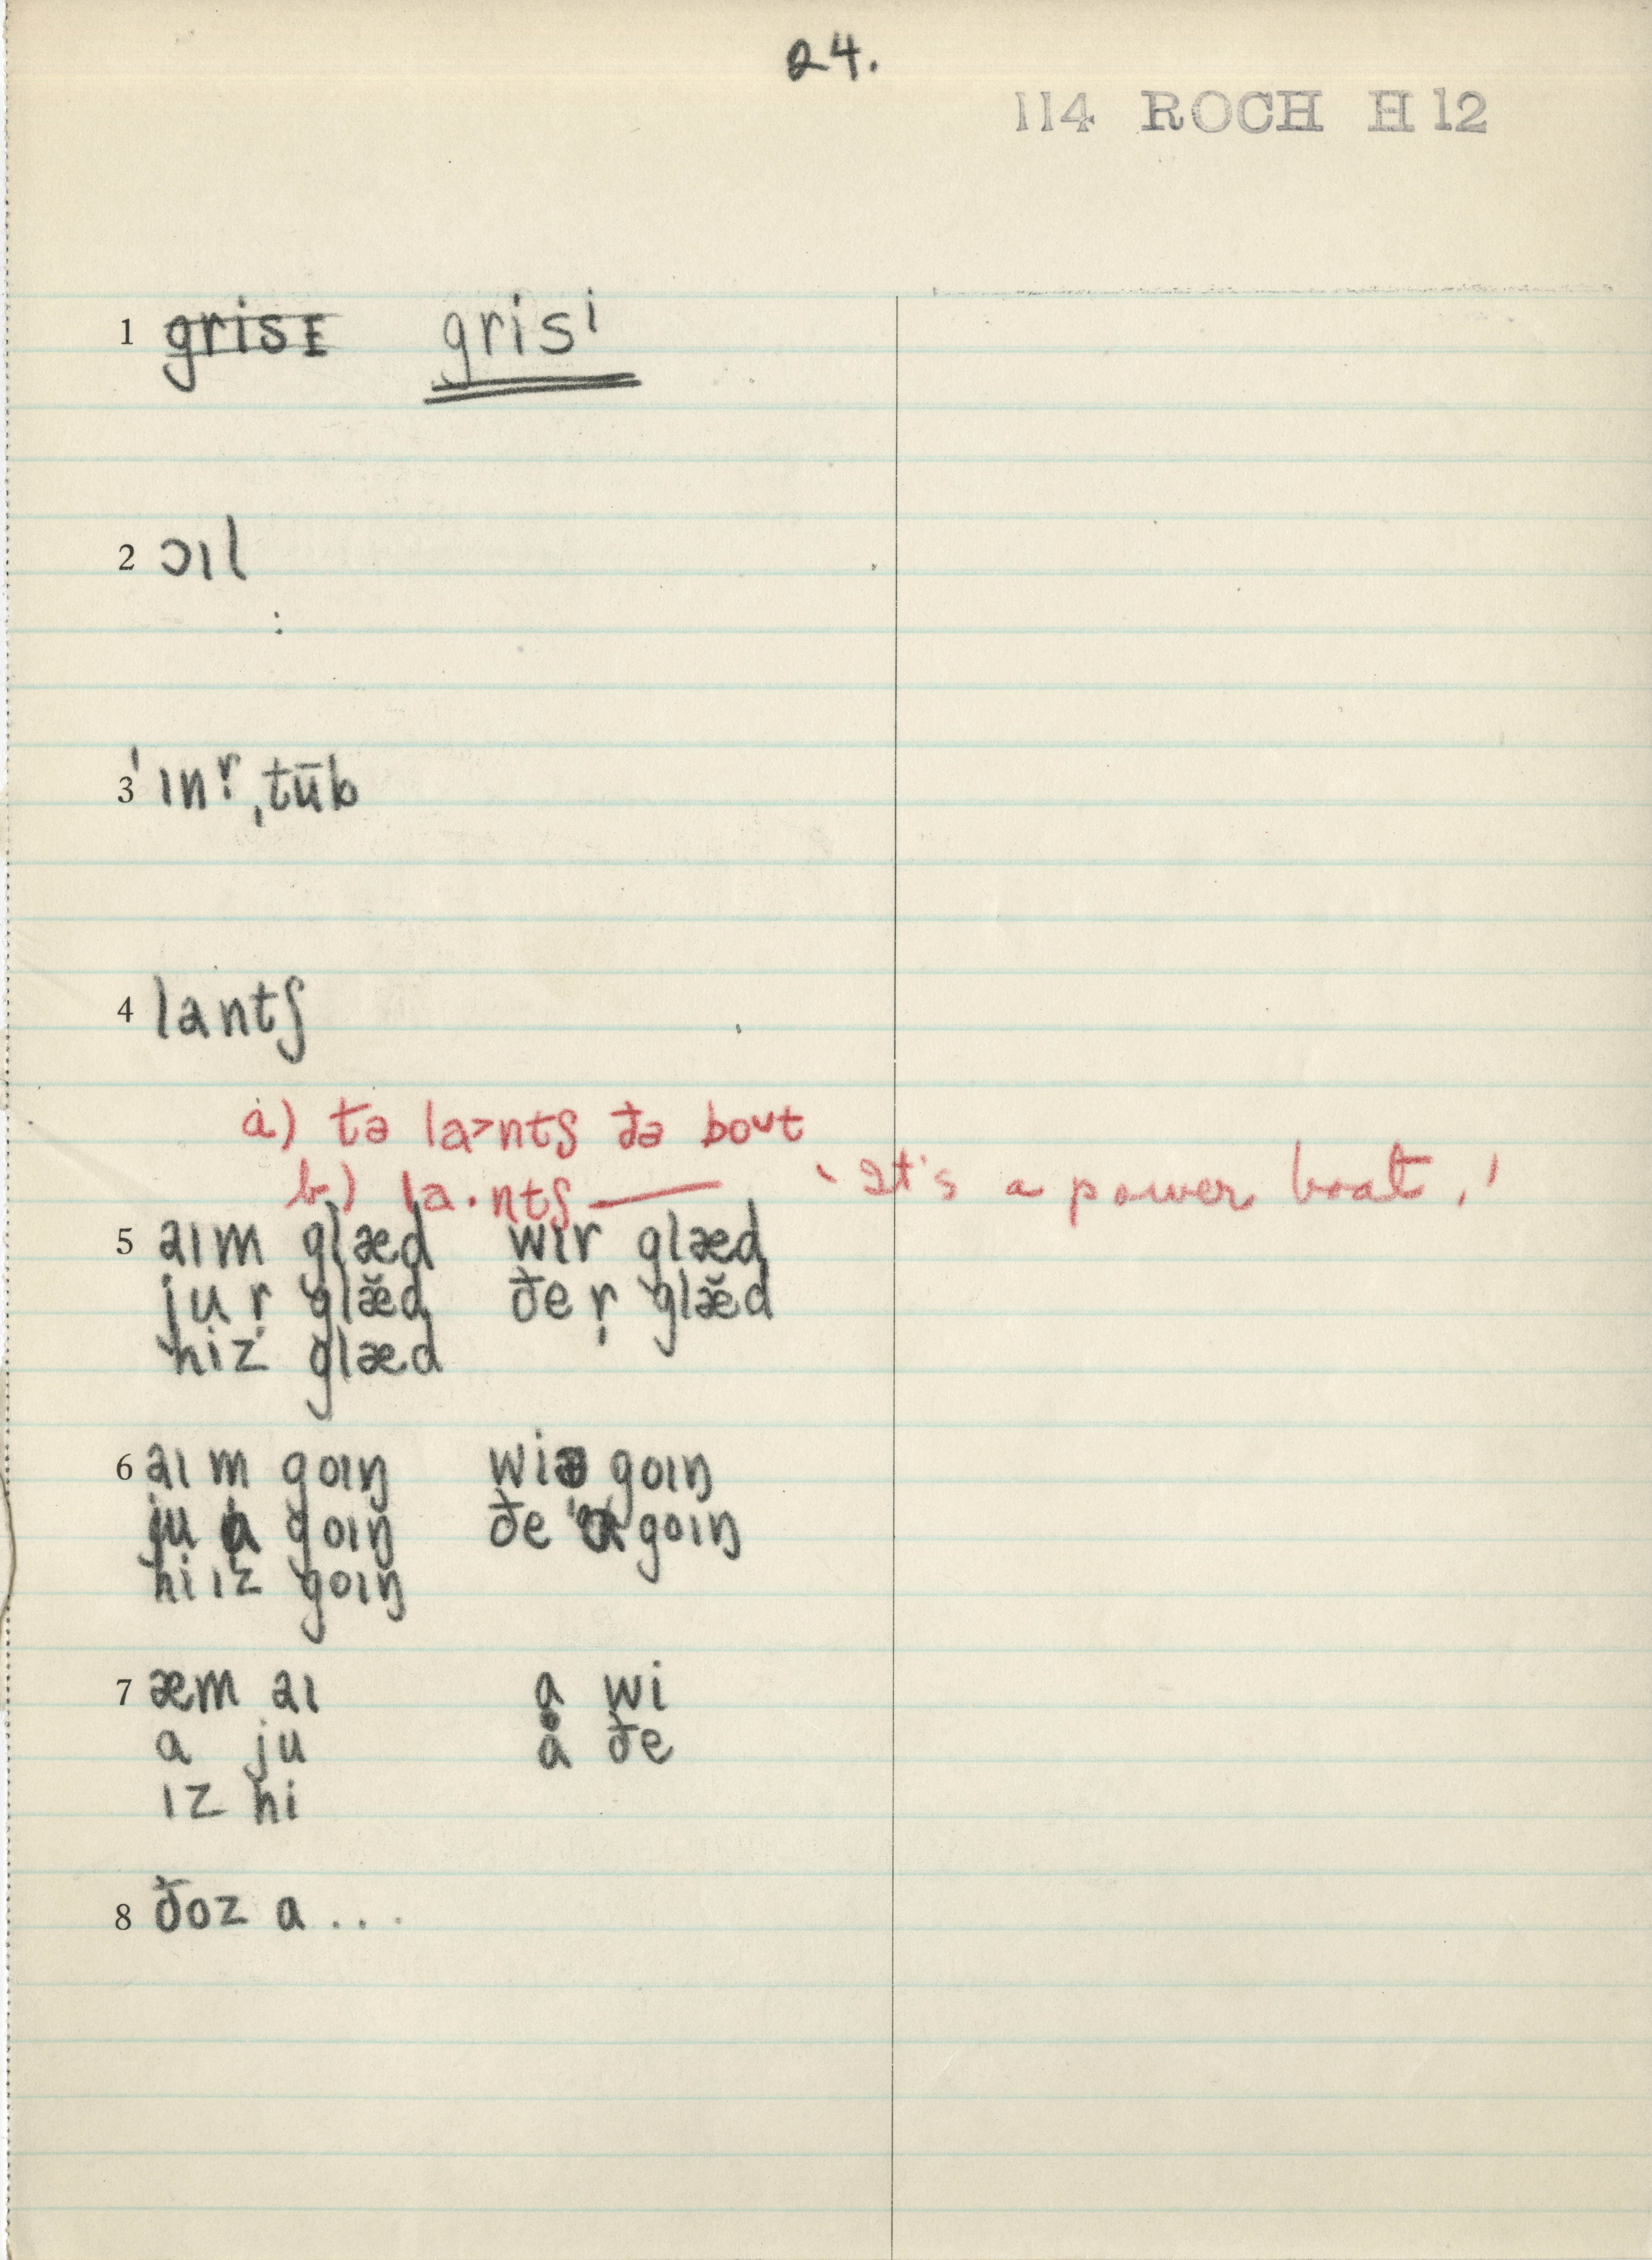 24.
114 ROCH H 12
1 grisɪ grisⁱ
2 ɔɪl
:
3 ˈɪnr̩ ˌtūb
4 lantʃ
a) tə la˃ntʃ ðə boᴜt
b) la·ntʃ —— 'It's a power boat.'
5 aɪm glæd wɪr glæd
ju r̩ glæ̆d ðe r̩ glæ̆d
hiz glæd
6 aɪ m goɪŋ wiə goɪŋ
ju a goɪŋ ðe goɪŋ
hi ɪz goɪŋ
7 æm aɪ a wi
a ju a ðe
ɪz hi
8 ðoz a . . .